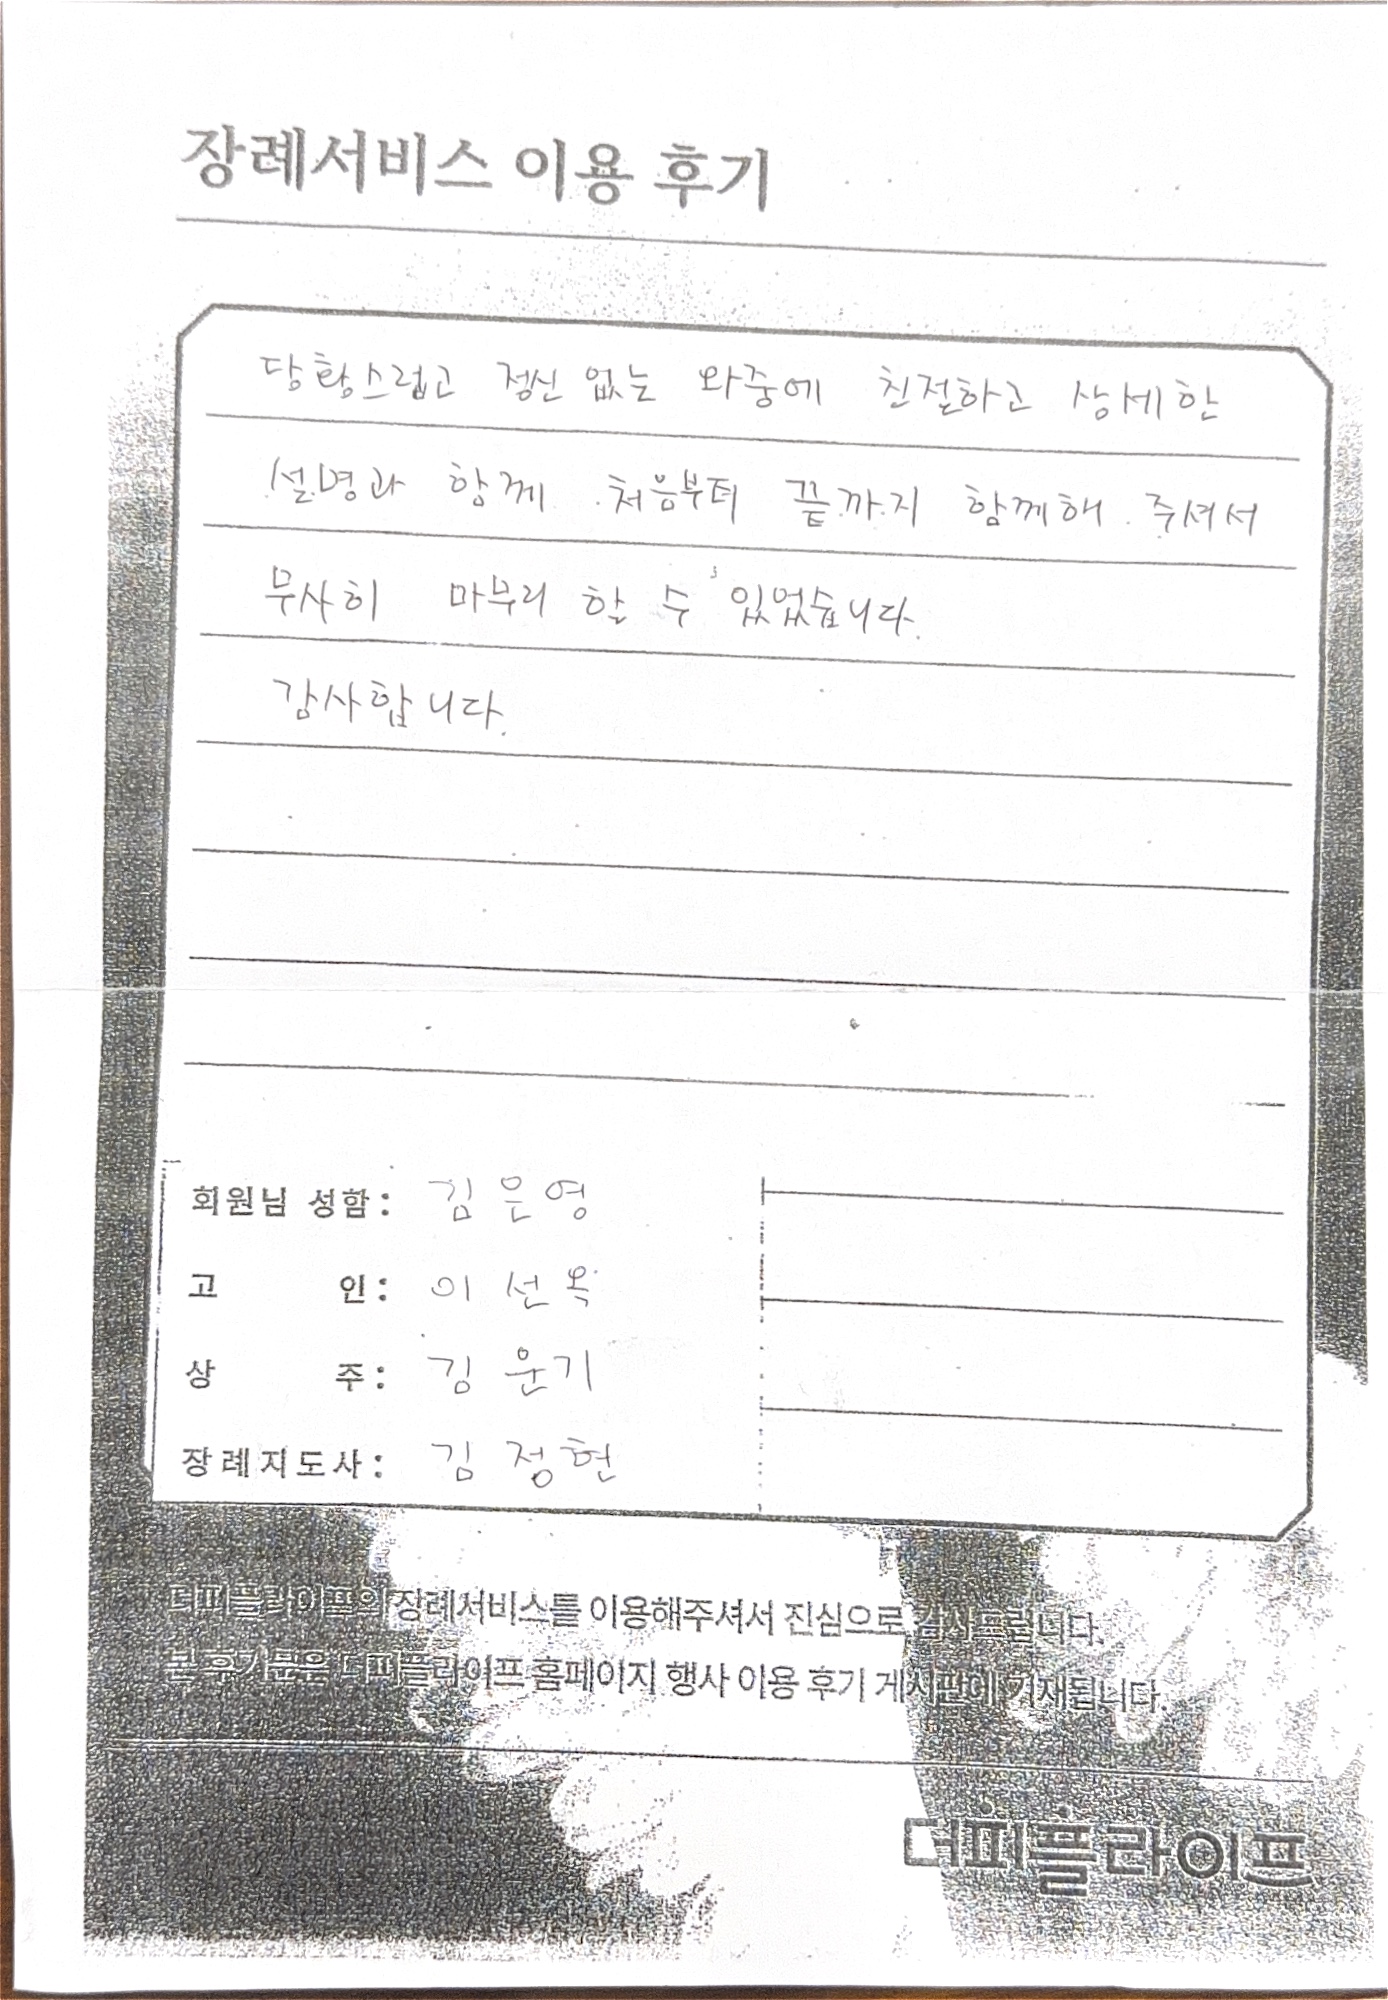 장례서비스 이용 후기
당황스럽고 정신 없는 와중에 친절하고 상세한
설명과 함께 처음부터 끝까지 함께해 주셔서
무사히 마무리 할 수 있었습니다.
감사합니다.
회원님 성함: 김은영
고 인: 이선옥
상 주: 김운기
장례지도사: 김정현
더피플라이프의 장례서비스를 이용해주셔서 진심으로 감사드립니다.
본 후기문은 더피플라이프 홈페이지 행사 이용 후기 게시판에 기재됩니다.
더피플라이프